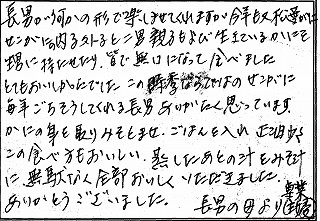 長男が何かの形で楽しませてくれますが今年も又松葉が
せこがに内子外子と二男親子もよび生きているかにを
甥に持たせたり、皆で無口になって食べました
とてもおいしかったでした この時季ならではのせこがに
毎年ごちそうしてくれる長男ありがたく思っています
かにの身を取りみそをませ、ごはんを入れ
この食べ方もおいしい 熱したあとの汁をみそ汁
に無駄なく全部おいしくいただきました。
ありがとうございました。 長男の母より